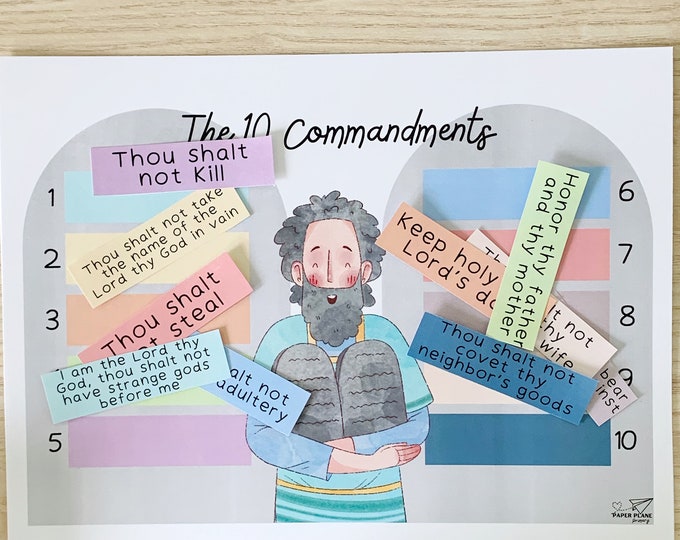 The 10 Commandments
Thou shalt
not Kill
1
Thou shalt not take
the name of the
Lord thy God in vain
2
Thou shalt
steal
3
I am the Lord thy
God, thou shalt not
have strange gods
before me
shalt not
adultery
5
6
Honor thy father
and thy mother
7
Keep holy
Lord's
not
thy
wife
8
Thou shalt not
covet thy
neighbor's goods
9
bear
10
PAPER PLANE